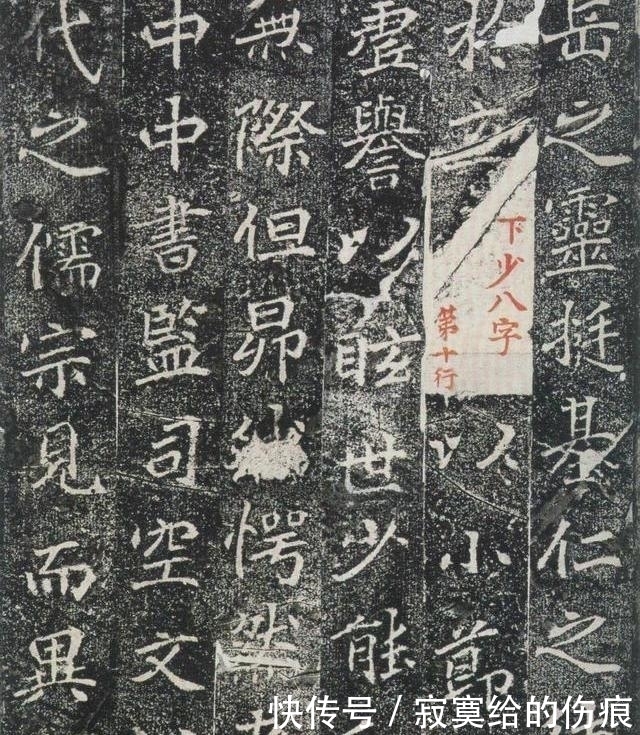 岳之靈挺基仁之
於
下少八字
第十行
以小莭
虛譽以眩世少能
無際但昴 愕然
中中書監司空文
代之儒宗見而異
快传号 / 寂寞给的伤痕